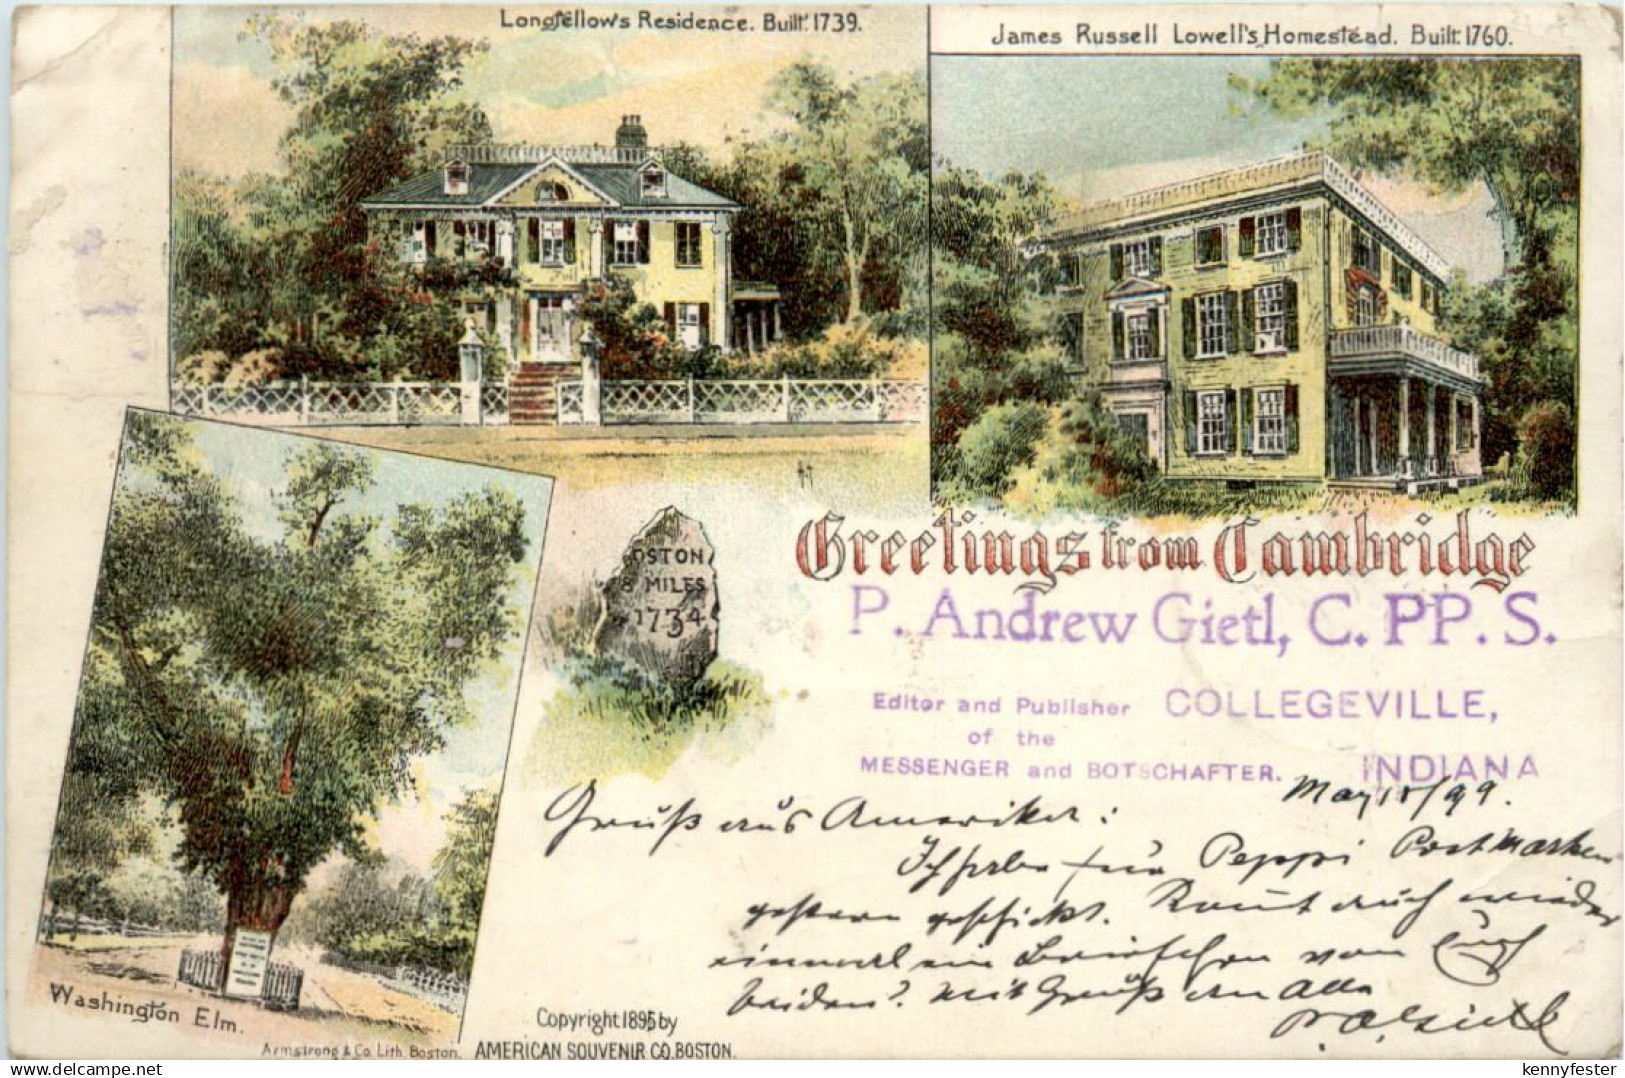 Longfellow's Residence. Built 1739.
James Russell Lowell's Homestead. Built 1760.
OSTON
8 MILES
1734
Greetings from Cambridge
P. Andrew Gietl, C. PP. S.
Editor and Publisher COLLEGEVILLE,
of the
MESSENGER and BOTSCHAFTER. INDIANA
May /99.
Gruß aus Amerika:
Ich habe für Peppi Postmarken
gestern geschickt. Kommt auch wieder
einmal ein Brieflein von Euch
beiden? Mit Gruß an Alle
P. A. Gietl
Washington Elm.
Copyright 1895 by
Armstrong & Co. Lith. Boston. AMERICAN SOUVENIR CO. BOSTON.
delcampe.net
kennyfester